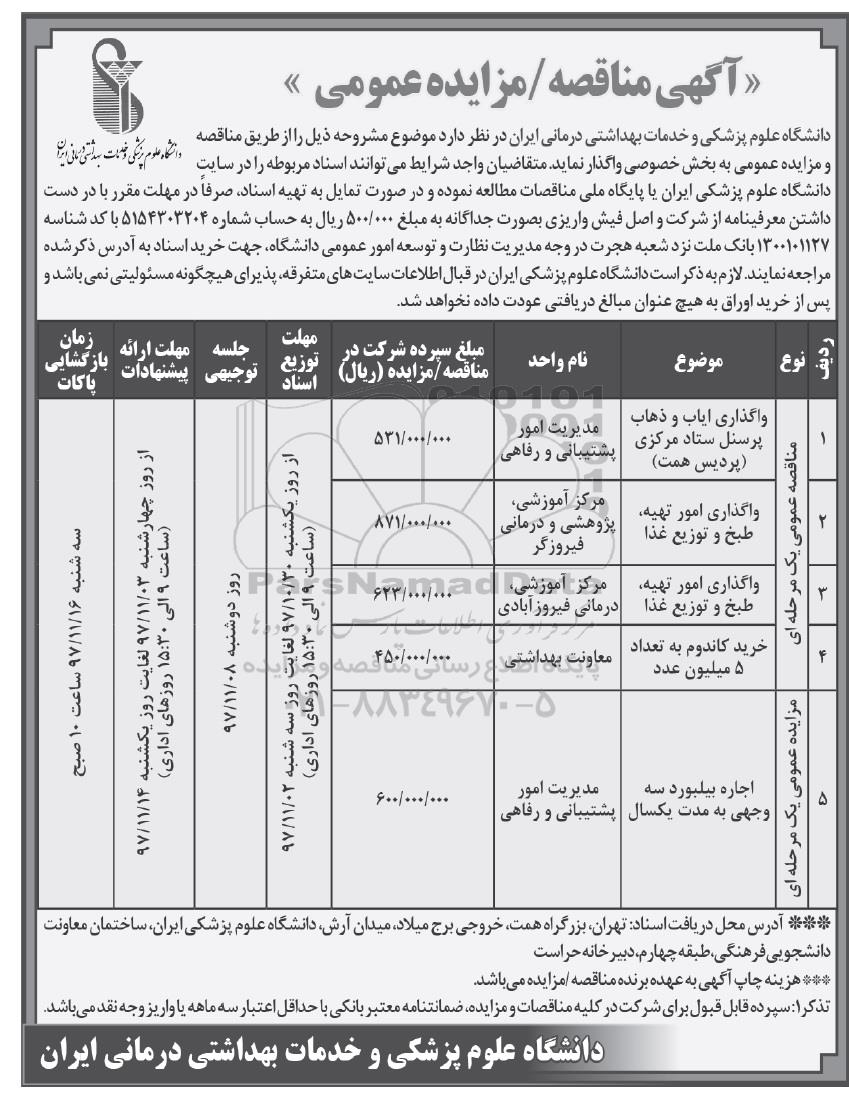 دانشگاه علوم پزشکی و خدمات بهداشتی درمانی ایران
« آگهی مناقصه/مزایده عمومی »
دانشگاه علوم پزشکی و خدمات بهداشتی درمانی ایران در نظر دارد موضوع مشروحه ذیل را از طریق مناقصه
و مزایده عمومی به بخش خصوصی واگذار نماید. متقاضیان واجد شرایط می توانند اسناد مربوطه را در سایت
دانشگاه علوم پزشکی ایران یا پایگاه ملی مناقصات مطالعه نموده و در صورت تمایل به تهیه اسناد، صرفاً در مهلت مقرر با در دست
داشتن معرفینامه از شرکت و اصل فیش واریزی بصورت جداگانه به مبلغ ۵۰۰/۰۰۰ ریال به حساب شماره ۵۱۵۴۳۰۳۲۰۴ با کد شناسه
۱۳۰۰۱۰۱۱۲۷ بانک ملت نزد شعبه هجرت در وجه مدیریت نظارت و توسعه امور عمومی دانشگاه، جهت خرید اسناد به آدرس ذکر شده
مراجعه نمایند. لازم به ذکر است دانشگاه علوم پزشکی ایران در قبال اطلاعات سایت های متفرقه، پذیرای هیچگونه مسئولیتی نمی باشد و
پس از خرید اوراق به هیچ عنوان مبالغ دریافتی عودت داده نخواهد شد.
ردیف
نوع
موضوع
نام واحد
مبلغ سپرده شرکت در
مناقصه/مزایده (ریال)
مهلت
توزیع
اسناد
جلسه
توجیهی
مهلت ارائه
پیشنهادات
زمان
بازگشایی
پاکات
۱
مناقصه عمومی یک مرحله ای
واگذاری ایاب و ذهاب
پرسنل ستاد مرکزی
(پردیس همت)
مدیریت امور
پشتیبانی و رفاهی
۵۳۱/۰۰۰/۰۰۰
از روز یکشنبه ۹۷/۱۰/۳۰ لغایت روز سه شنبه ۹۷/۱۱/۰۲
(ساعت ۹ الی ۱۵:۳۰ روزهای اداری)
روز دوشنبه ۹۷/۱۱/۰۸
از روز چهارشنبه ۹۷/۱۱/۰۳ لغایت روز یکشنبه ۹۷/۱۱/۱۴
(ساعت ۹ الی ۱۵:۳۰ روزهای اداری)
سه شنبه ۹۷/۱۱/۱۶ ساعت ۱۰ صبح
۲
واگذاری امور تهیه،
طبخ و توزیع غذا
مرکز آموزشی،
پژوهشی و درمانی
فیروزگر
۸۷۱/۰۰۰/۰۰۰
۳
واگذاری امور تهیه،
طبخ و توزیع غذا
مرکز آموزشی،
درمانی فیروزآبادی
۶۲۳/۰۰۰/۰۰۰
۴
خرید کاندوم به تعداد
۵ میلیون عدد
معاونت بهداشتی
۴۵۰/۰۰۰/۰۰۰
۵
مزایده عمومی یک مرحله ای
اجاره بیلبورد سه
وجهی به مدت یکسال
مدیریت امور
پشتیبانی و رفاهی
۶۰۰/۰۰۰/۰۰۰
ParsNamadData
مرکز فرآوری اطلاعات پارس نماد داده ها
پایگاه اطلاع رسانی مناقصه و مزایده
۰۲۱-۸۸۳۴۹۶۷۰-۵
*** آدرس محل دریافت اسناد: تهران، بزرگراه همت، خروجی برج میلاد، میدان آرش، دانشگاه علوم پزشکی ایران، ساختمان معاونت
دانشجویی فرهنگی، طبقه چهارم، دبیرخانه حراست
*** هزینه چاپ آگهی به عهده برنده مناقصه/مزایده می باشد.
تذکر۱: سپرده قابل قبول برای شرکت در کلیه مناقصات و مزایده، ضمانتنامه معتبر بانکی با حداقل اعتبار سه ماهه یا واریز وجه نقد می باشد.
دانشگاه علوم پزشکی و خدمات بهداشتی درمانی ایران